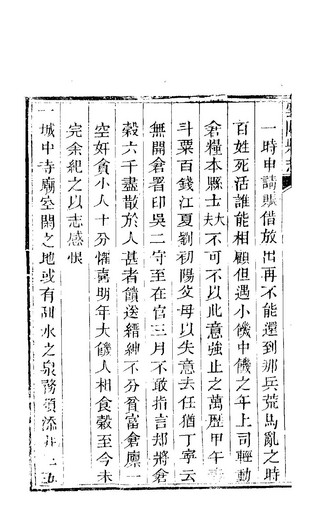 一時申請賑借放出再不能還到那兵荒馬亂之時
百姓死活誰能相顧但遇小饑中饑之年上司輕動
倉糧本縣士大夫不可不以此意強止之萬歷甲午
斗粟百錢江夏劉初陽父母以失意去任猶丁寧云
無開倉署印吳二守至在官三月不敢指言却將倉
穀六千盡散於人甚者饋送縉紳不分貧富倉廩一
空奸貪小人十分懽喜明年大饑人相食穀至今未
完余紀之以志感恨
一城中寺廟空閑之地或有甜水之泉務須添井三五